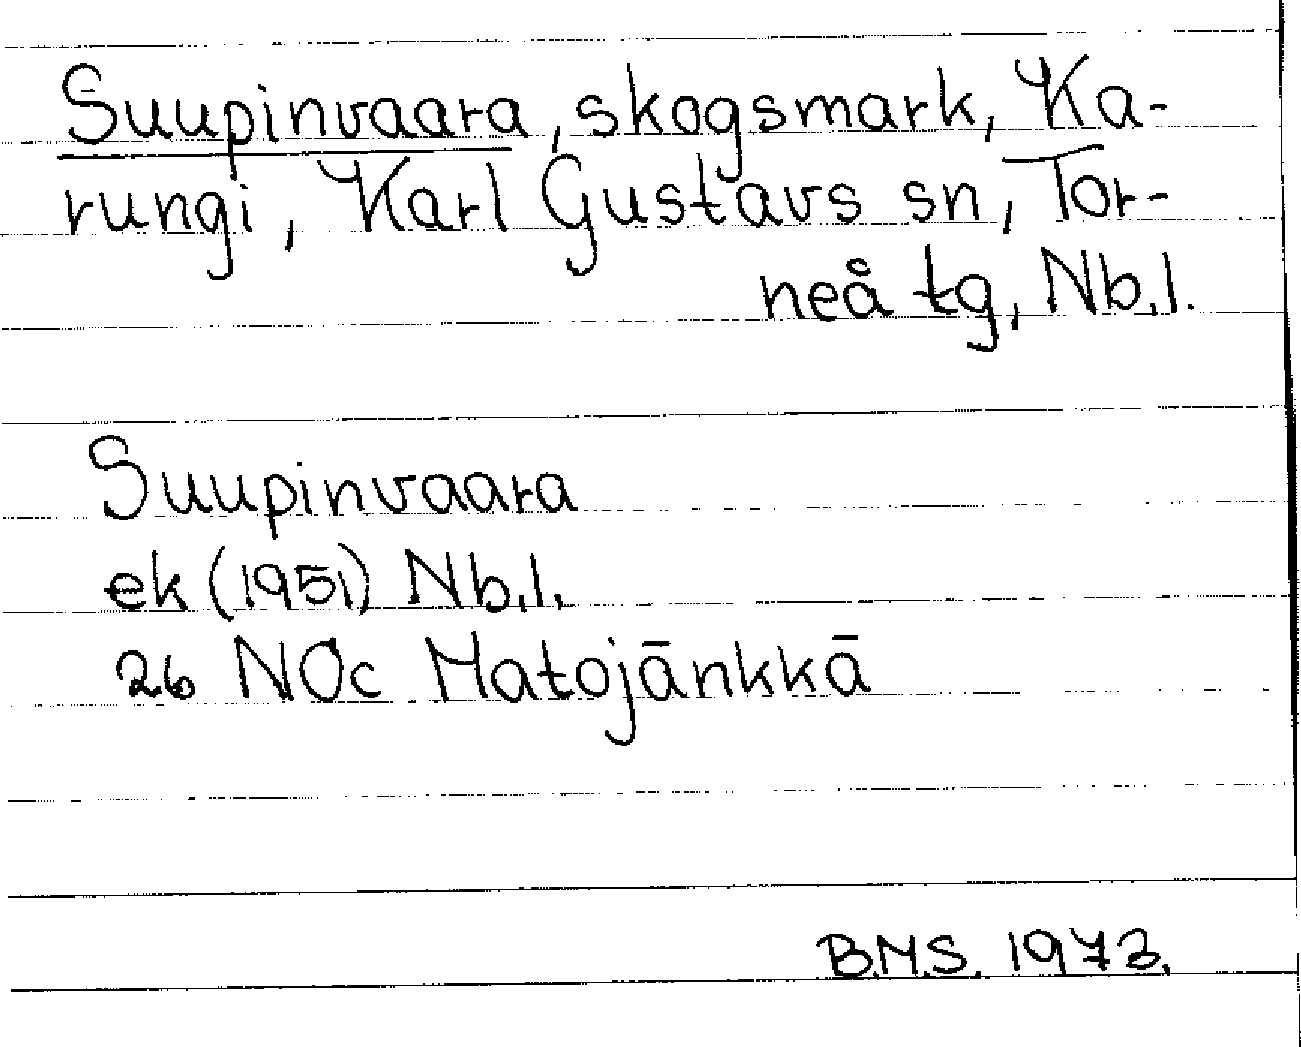 Suupinvaara, skogsmark, Ka-
rungi, Karl Gustavs sn, Tor-
neå tg, Nb.l.
Suupinvaara
ek (1951) Nb.l.
26 NOc Matojänkkä
B.M.S. 1973.